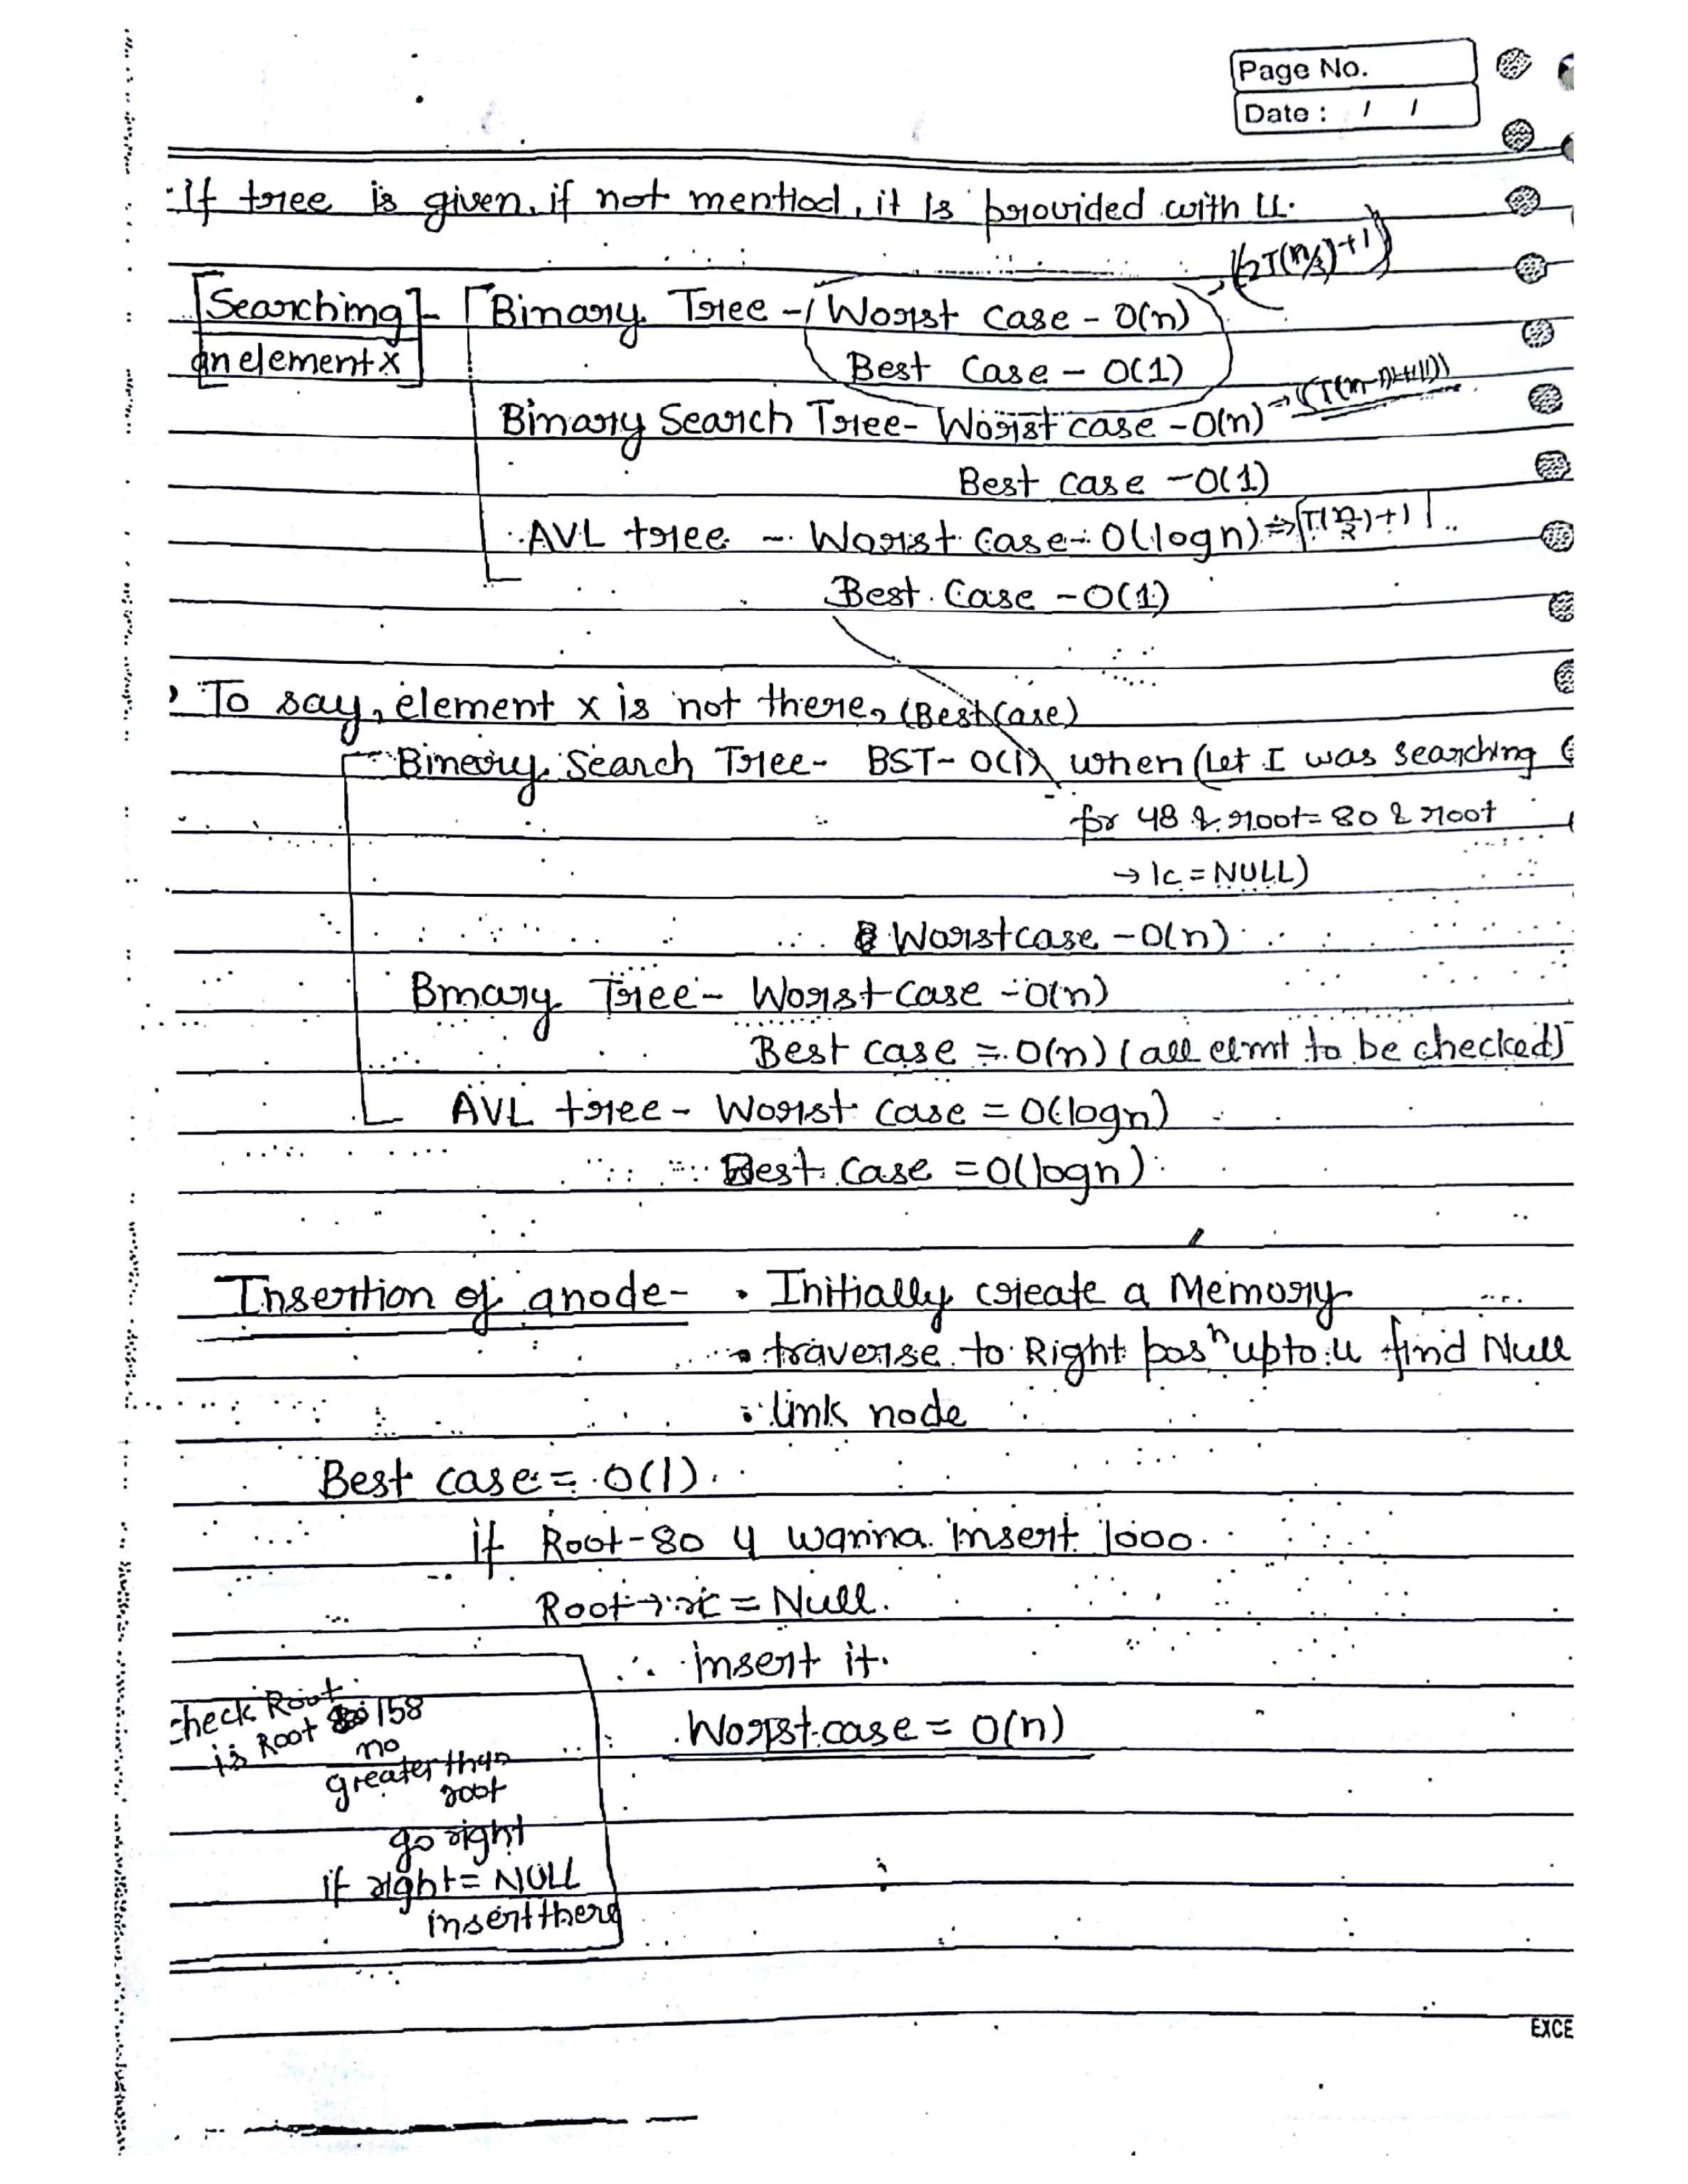 Page No.
Date : / /
If tree is given, if not mentiod, it is provided with LL.
(2T(n/2)+1)
[Searching - Binary Tree - Worst case - O(n)
an element x] Best Case - O(1)
Binary Search Tree - Worst case - O(n) →
Best case - O(1)
AVL tree - Worst case - O(logn) ⇒ T(n/2)+1
Best Case - O(1)
To say, element x is not there, (Best Case)
Binary Search Tree - BST - O(1) when (Let I was searching
for 48 & root = 80 & root
→ lc = NULL)
Worst case - O(n)
Binary Tree - Worst case - O(n)
Best case = O(n) (all elmt to be checked)
AVL tree - Worst case = O(logn)
Best case = O(logn)
Insertion of a node - • Initially create a Memory
• traverse to Right posn upto u find Null
• link node
Best case = O(1).
if Root - 80 u wanna insert 1000.
Root → rc = Null.
∴ insert it.
Worst case = O(n)
check Root
is Root 158
no
greater than
root
go right
if right = NULL
insert there
EXCE